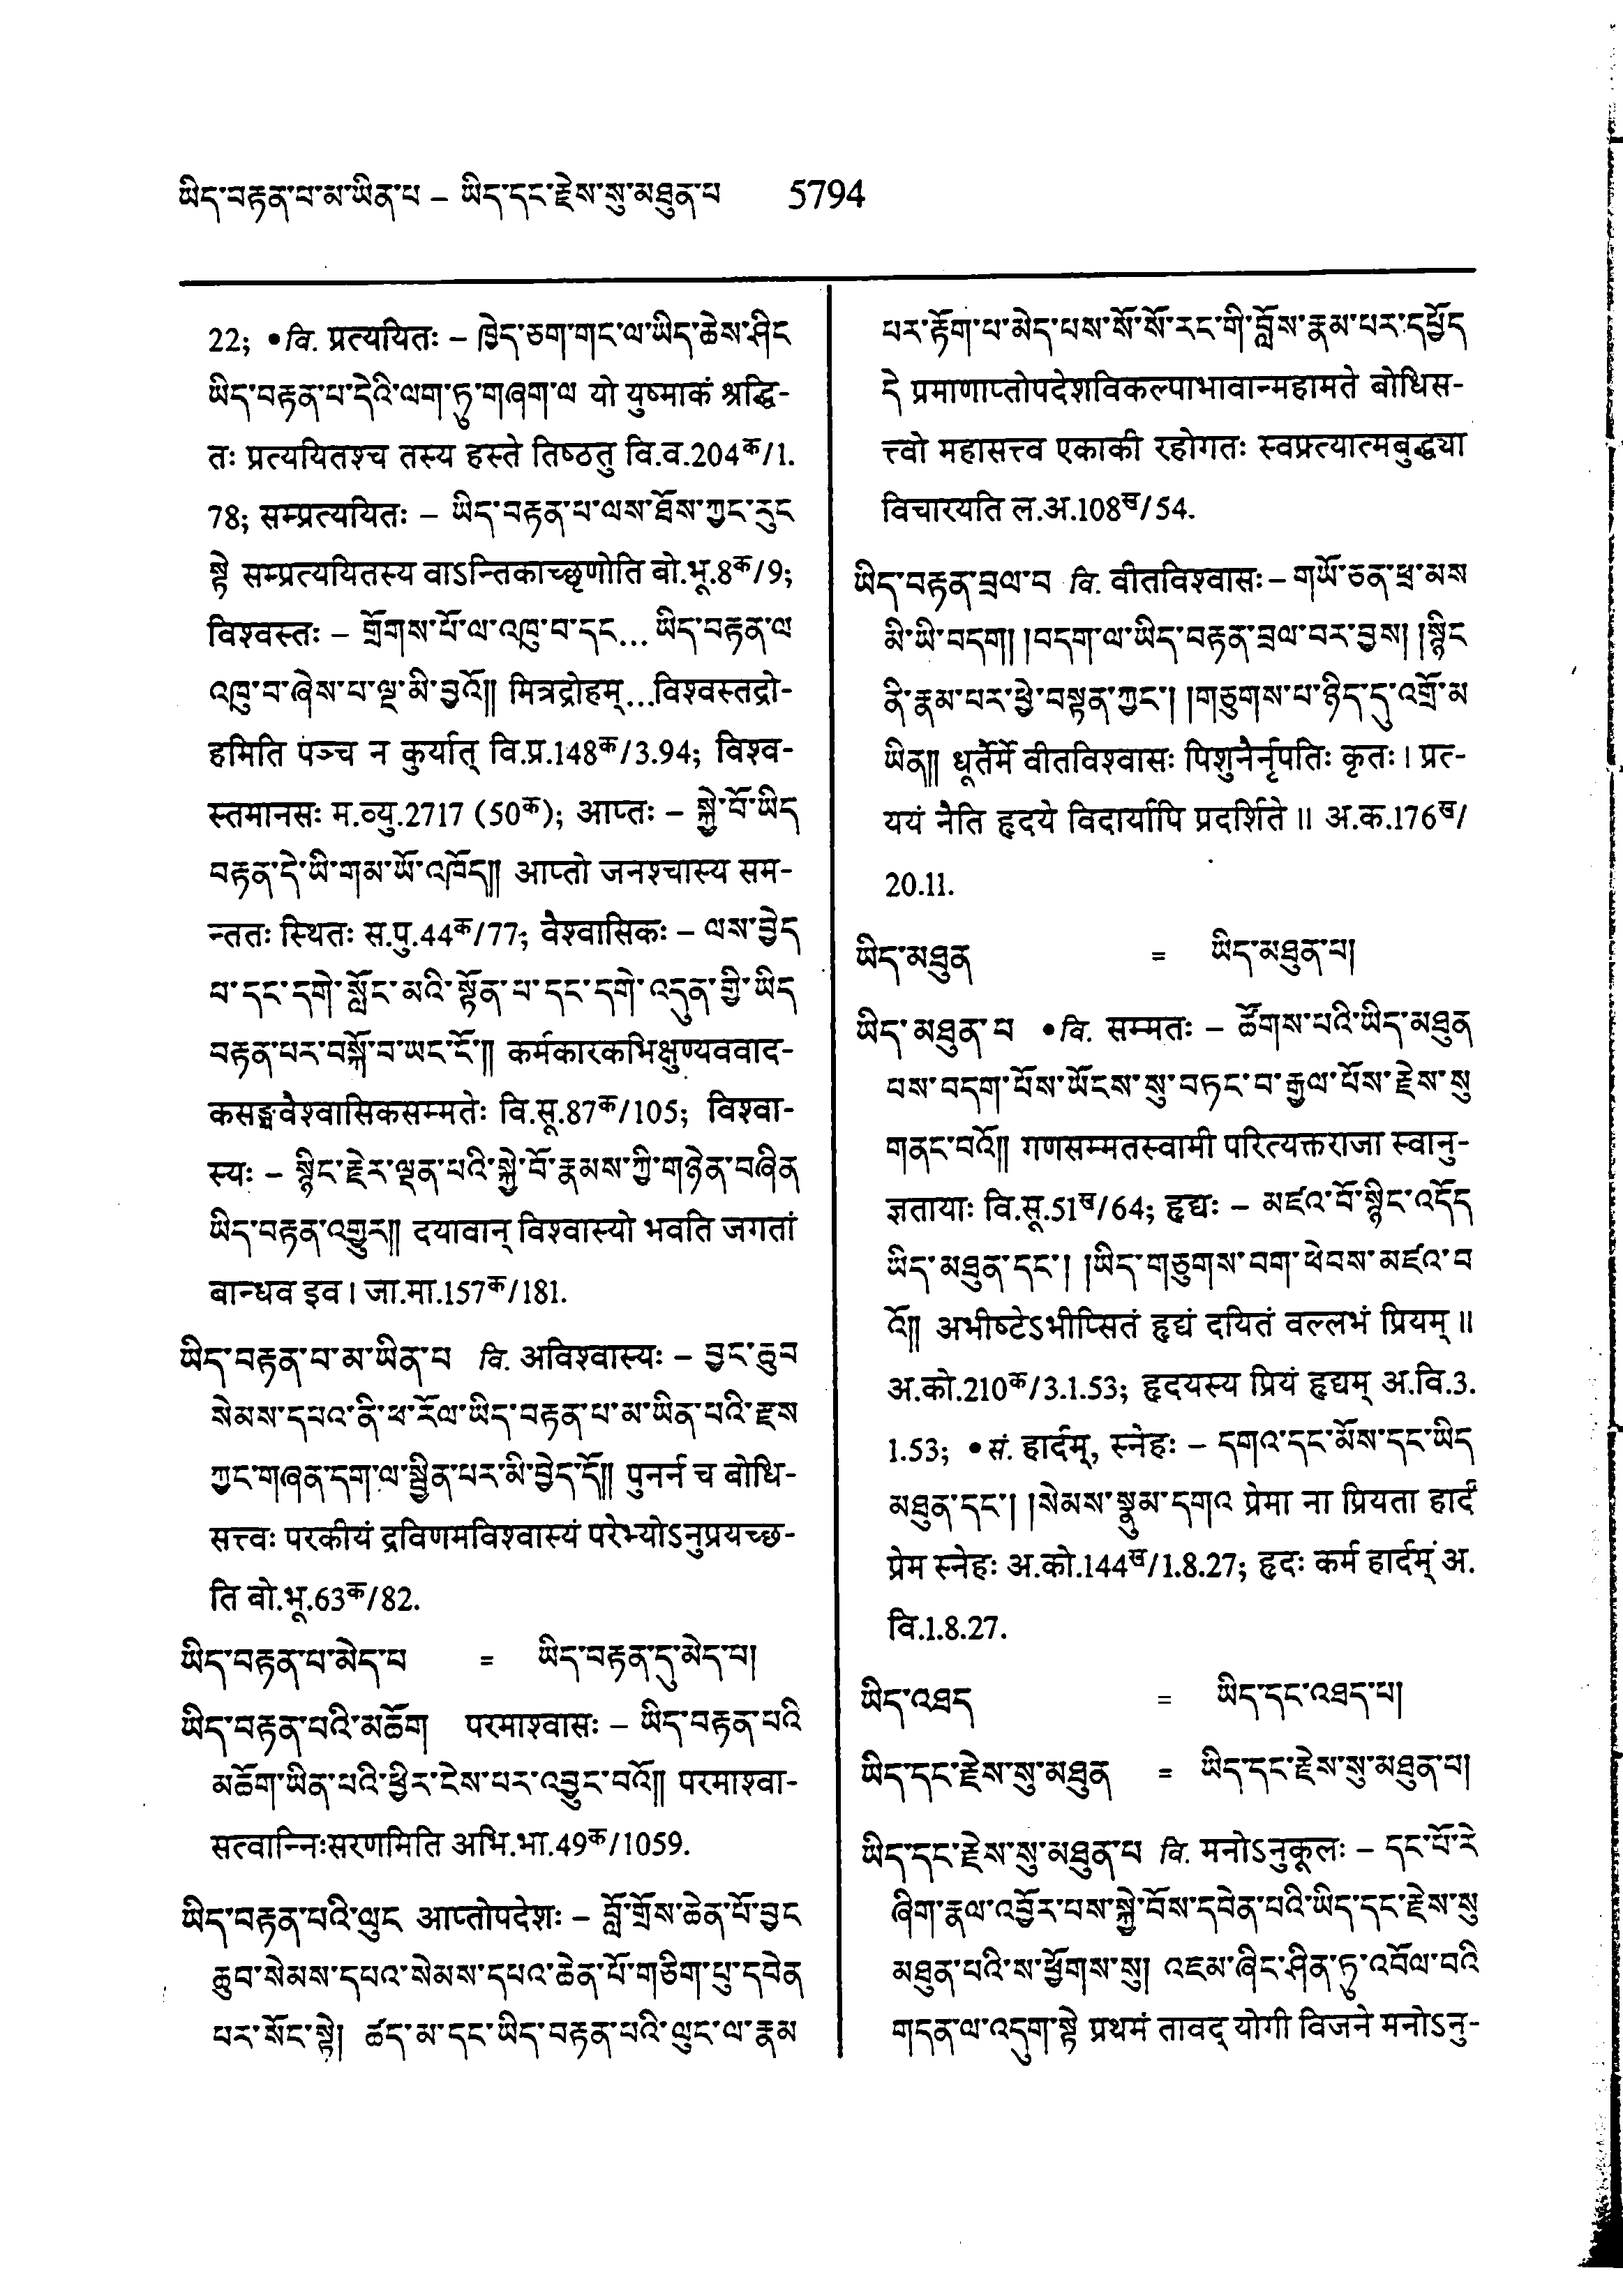 ཡིད་བརྟན་པ་མ་ཡིན་པ – ཡིད་དང་རྗེས་སུ་མཐུན་པ 5794
22; •वि. प्रत्ययितः – ཁྱེད་ཅག་གང་ལ་ཡིད་ཆེས་ཤིང
ཡིད་བརྟན་པ་དེའི་ལག་ཏུ་གཞག་ལ यो युष्माकं श्रद्धि-
तः प्रत्ययितश्च तस्य हस्ते तिष्ठतु वि.व.204क/1.
78; सम्प्रत्ययितः – ཡིད་བརྟན་པ་ལས་ཐོས་ཀྱང་རུང
སྟེ सम्प्रत्ययितस्य वाऽन्तिकाच्छृणोति बो.भू.8क/9;
विश्वस्तः – གྲོགས་པོ་ལ་འཁུ་བ་དང... ཡིད་བརྟན་ལ
འཁུ་བ་ཞེས་པ་ལྔ་མི་བྱའོ།། मित्रद्रोहम्...विश्वस्तद्रो-
हमिति पञ्च न कुर्यात् वि.प्र.148क/3.94; विश्व-
स्तमानसः म.व्यु.2717 (50क); आप्तः – སྐྱེ་བོ་ཡིད
བརྟན་དེ་ཡི་གམ་ཡོ་འཁོད།། आप्तो जनश्चास्य सम-
न्ततः स्थितः स.पु.44क/77; वैश्वासिकः – ལས་བྱེད
པ་དང་དགེ་སློང་མའི་སྟོན་པ་དང་དགེ་འདུན་གྱི་ཡིད
བརྟན་པར་བསྐོ་བ་ཡང་ངོ་།། कर्मकारकभिक्षुण्यववाद-
कसङ्घवैश्वासिकसम्मतेः वि.सू.87क/105; विश्वा-
स्यः – སྙིང་རྗེར་ལྡན་པའི་སྐྱེ་བོ་རྣམས་ཀྱི་གཉེན་བཞིན
ཡིད་བརྟན་འགྱུར།། दयावान् विश्वास्यो भवति जगतां
बान्धव इव। जा.मा.157क/181.
ཡིད་བརྟན་པ་མ་ཡིན་པ वि. अविश्वास्यः – བྱང་ཆུབ
སེམས་དཔའ་ནི་ཕ་རོལ་ཡིད་བརྟན་པ་མ་ཡིན་པའི་རྫས
ཀྱང་གཞན་དག་ལ་སྦྱིན་པར་མི་བྱེད་དོ།། पुनर्न च बोधि-
सत्त्वः परकीयं द्रविणमविश्वास्यं परेभ्योऽनुप्रयच्छ-
ति बो.भू.63क/82.
ཡིད་བརྟན་པ་མེད་པ = ཡིད་བརྟན་དུ་མེད་པ།
ཡིད་བརྟན་པའི་མཆོག परमाश्वासः – ཡིད་བརྟན་པའི
མཆོག་ཡིན་པའི་ཕྱིར་ངེས་པར་འབྱུང་བའོ།། परमाश्वा-
सत्वान्निःसरणमिति अभि.भा.49क/1059.
ཡིད་བརྟན་པའི་ལུང आप्तोपदेशः – བློ་གྲོས་ཆེན་པོ་བྱང
ཆུབ་སེམས་དཔའ་སེམས་དཔའ་ཆེན་པོ་གཅིག་པུ་དབེན
པར་སོང་སྟེ། ཚད་མ་དང་ཡིད་བརྟན་པའི་ལུང་ལ་རྣམ
པར་རྟོག་པ་མེད་པས་སོ་སོ་རང་གི་བློས་རྣམ་པར་དཔྱོད
དེ प्रमाणाप्तोपदेशविकल्पाभावान्महामते बोधिस-
त्त्वो महासत्त्व एकाकी रहोगतः स्वप्रत्यात्मबुद्ध्या
विचारयति ल.अ.108ख/54.
ཡིད་བརྟན་བྲལ་བ वि. वीतविश्वासः – གཡོ་ཅན་ཕྲ་མས
མི་ཡི་བདག། །བདག་ལ་ཡིད་བརྟན་བྲལ་བར་བྱས། །སྙིང
ནི་རྣམ་པར་ཕྱེ་བསྟན་ཀྱང་། །གཅུགས་པ་ཉིད་དུ་འགྲོ་མ
ཡིན།། धूर्तैर्मे वीतविश्वासः पिशुनैर्नृपतिः कृतः। प्रत्-
ययं नैति हृदये विदार्यापि प्रदर्शिते॥ अ.क.176ख/
20.11.
ཡིད་མཐུན = ཡིད་མཐུན་པ།
ཡིད་མཐུན་པ •वि. सम्मतः – ཚོགས་པའི་ཡིད་མཐུན
པས་བདག་པོས་ཡོངས་སུ་བཏང་བ་རྒྱལ་པོས་རྗེས་སུ
གནང་བའོ།། गणसम्मतस्वामी परित्यक्तराजा स्वानु-
ज्ञतायाः वि.सू.51ख/64; हृद्यः – མཛའ་བོ་སྙིང་འདོད
ཡིད་མཐུན་དང་། །ཡིད་གཅུགས་བག་ཕེབས་མཛའ་བ
འོ།། अभीष्टेऽभीप्सितं हृद्यं दयितं वल्लभं प्रियम्॥
अ.को.210क/3.1.53; हृदयस्य प्रियं हृद्यम् अ.वि.3.
1.53; •सं. हार्दम्, स्नेहः – དགའ་དང་མོས་དང་ཡིད
མཐུན་དང་། །སེམས་སྣུམ་དགའ प्रेमा ना प्रियता हार्दं
प्रेम स्नेहः अ.को.144ख/1.8.27; हृदः कर्म हार्दम् अ.
वि.1.8.27.
ཡིད་འཐད = ཡིད་དང་འཐད་པ།
ཡིད་དང་རྗེས་སུ་མཐུན = ཡིད་དང་རྗེས་སུ་མཐུན་པ།
ཡིད་དང་རྗེས་སུ་མཐུན་པ वि. मनोऽनुकूलः – དང་པོ་རེ
ཞིག་རྣལ་འབྱོར་པས་སྐྱེ་བོས་དབེན་པའི་ཡིད་དང་རྗེས་སུ
མཐུན་པའི་ས་ཕྱོགས་སུ། འཇམ་ཞིང་ཤིན་ཏུ་འབོལ་བའི
གདན་ལ་འདུག་སྟེ प्रथमं तावद् योगी विजने मनोऽनु-